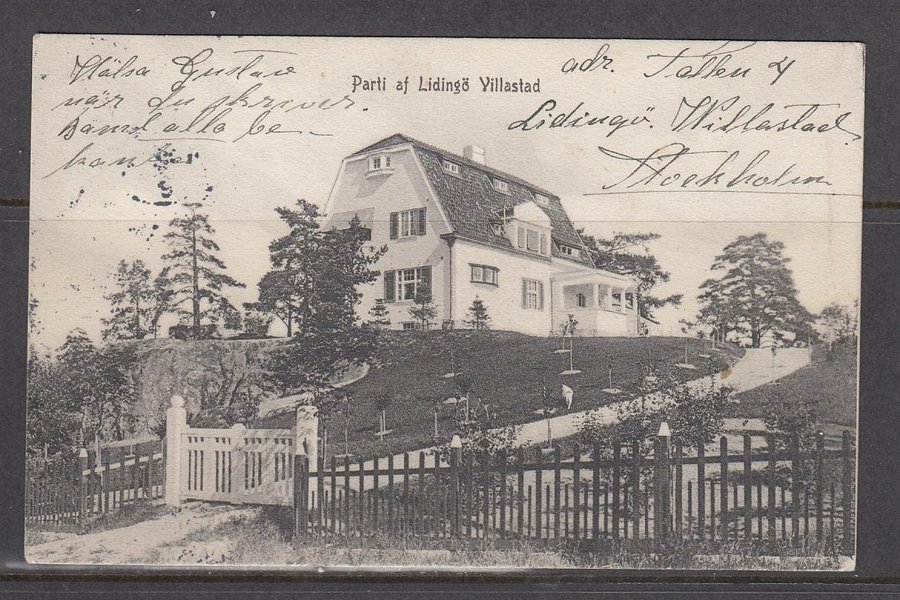 Parti af Lidingö Villastad
Hälsa Gustav
när du skriver.
samt alla be-
kanta
adr. Tallen 4
Lidingö. Willastad
Stockholm